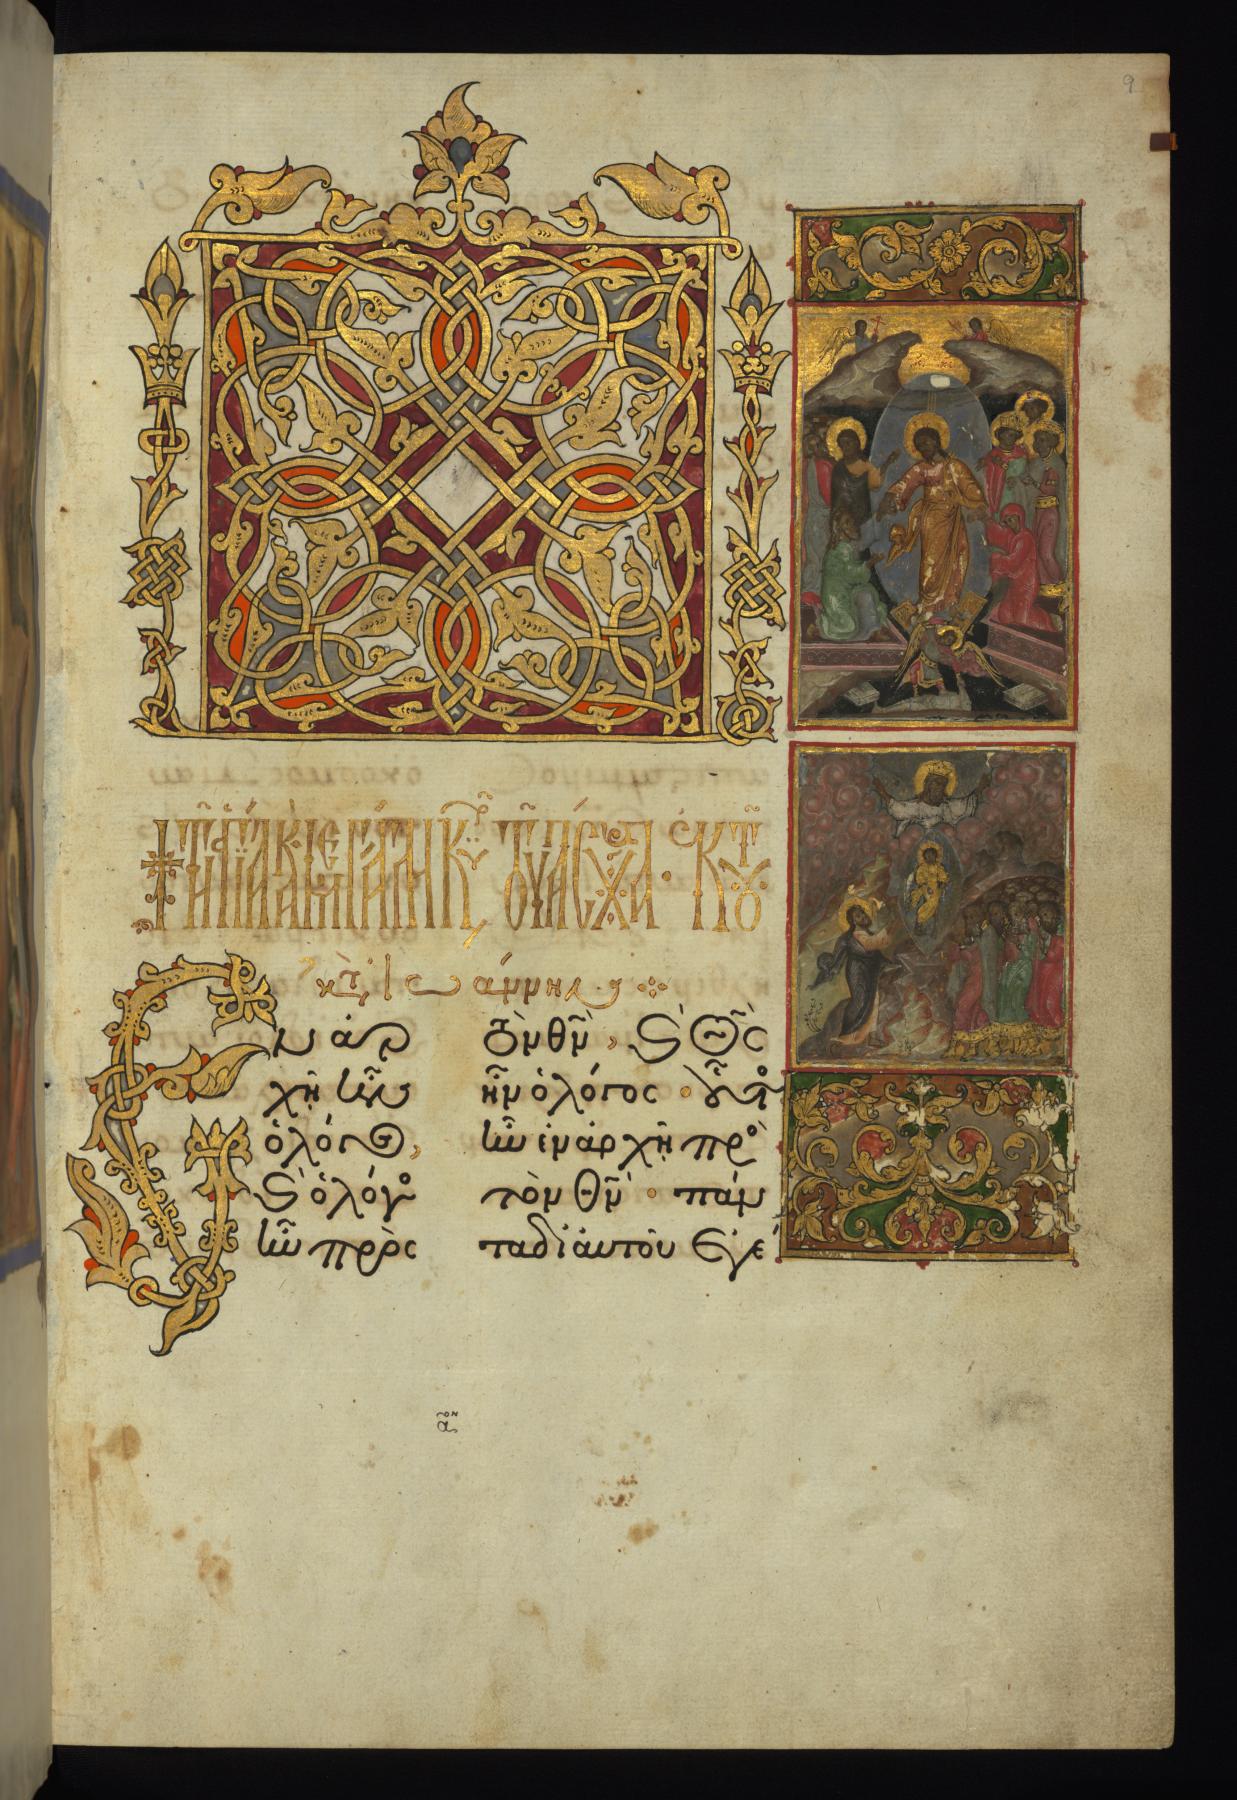 9
Τῇ ἁγίᾳ κὶ μεγάλῃ Κυ τοῦ πάσχα · ἐκ τοῦ
κτ Ἰω άννην
Ἐν ἀρ
χῇ ἦν
ὁ λόγος,
ϗ ὁ λόγος
ἦν πρὸς
τὸν θν͂, ϗ θς͂
ἦν ὁ λόγος · οὗτος
ἦν ἐν ἀρχῇ πρὸς
τὸν θν͂ · πάν
τα δι αὐτοῦ ἐγέ